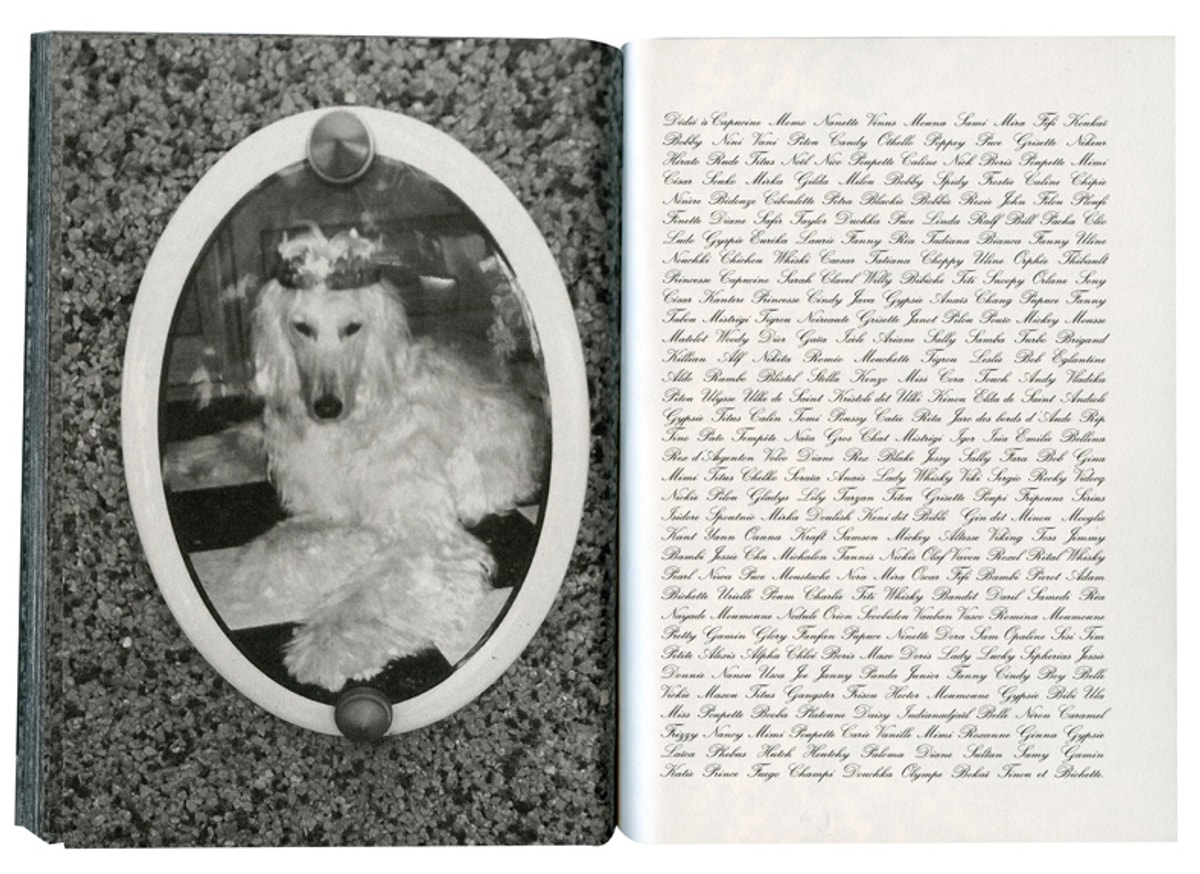 Dédié à Capucine Momo Nanette Vénus Mouna Sami Mira Fifi Koukaï
Bobby Nini Vani Piton Candy Othello Poppey Puce Grisette Nikeur
Hirato Rude Titus Noël Nico Poupette Caline Nick Boris Poupette Mimi
César Souko Mirka Gilda Milou Bobby Spidy Frostie Caline Chipie
Ninère Bidouze Ciboulette Petra Blackie Bobbie Roxie John Filou Ploufi
Finette Diane Safir Taylor Duchka Puce Linda Ralf Bill Pacha Cléo
Ludo Gyspie Eurêka Laurie Fanny Réa Tadiana Bianca Fanny Uline
Noushki Chichou Whiski Caesar Tatiana Choppy Uline Orphée Thibault
Princesse Capucine Sarah Clavel Willy Bibiche Titi Snoopy Orlane Sony
César Kantore Princesse Cindy Java Gypsie Anaïs Chang Pupuce Fanny
Tabou Mistrigi Tigrou Noiraute Grisette Janot Pilou Pouic Mickey Mousse
Matelot Woody Dior Gaïa Icole Ariane Sally Samba Turbo Brigand
Killian Alf Nikita Roméo Mouchette Tigrou Leslie Bob Eglantine
Aldo Rambo Blistel Stella Kenzo Miss Cora Touch Andy Vladika
Pitou Ulysse Ulke de Saint Kristoli dit Ulki Kinou Elda de Saint Andiole
Gypsie Titus Calin Tomi Poussy Catie Rita Jaro des bords d'Ande Rip
Tino Pato Tempête Naïa Gros Chat Mistrigi Igor Isia Emilie Bellina
Rex d'Argenton Volvo Diane Rex Blake Jessy Sally Fara Bob Gina
Mimi Titus Chelko Soraia Anaïs Lady Whisky Viki Sergio Rocky Vidocq
Nickie Pilou Gladys Lily Tarzan Titou Grisette Poupi Friponne Sirius
Isidore Spoutnic Mirka Doulish Keni dit Bibli Gin dit Minou Mooglie
Kant Yann Oanna Kraft Samson Mickey Altesse Viking Toss Jimmy
Bambi Jessie Cha Michalon Tannis Nickie Olaf Vavon Roxel Rital Whisky
Pearl Niwa Puce Moustache Nora Mira Oscar Fifi Bambi Pierot Adam
Bichette Urielle Poum Charlie Titi Whisky Bandit Daril Samedi Réa
Nayade Moumoune Nodule Orion Scoobidou Vauban Vasco Romina Moumoune
Pretty Gamin Glory Fanfan Pupuce Ninette Dora Sam Opaline Sisi Tim
Petite Alexis Alpha Chloé Boris Maxo Doris Lady Lucky Sipherias Jessie
Dounie Nanou Usca Joe Janny Panda Junior Fanny Cindy Boy Belle
Vickie Maxou Titus Gangster Frisou Hector Moumoune Gypsie Bibi Ula
Miss Poupette Booba Platoune Daisy Indianadjaïl Belle Néron Caramel
Frizzy Nancy Mimi Poupette Carie Vanille Mimi Roxanne Ginna Gypsie
Laïca Phebus Hutch Houtchy Paloma Diane Sultan Samy Gamin
Katie Prince Fuego Champi Douchka Olympe Bokaï Tinou et Bichette.